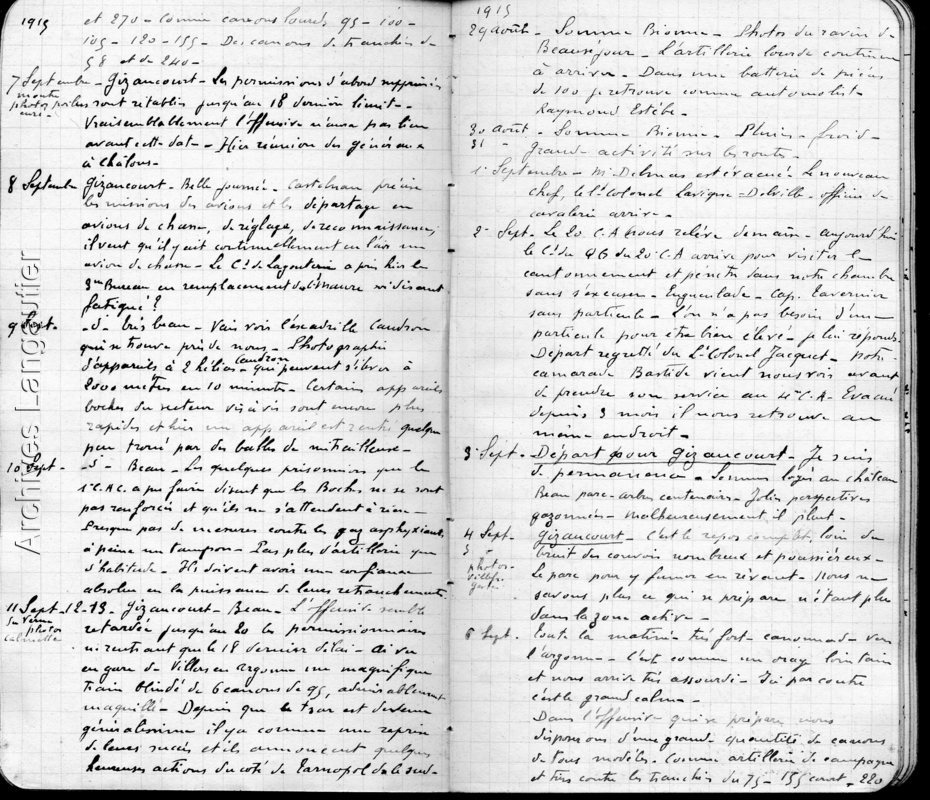 1915
et 270 - Comme canons lourds 95 - 100 -
105 - 120 - 155 - Des canons de tranchées de
58 et de 240 -
7 Septembre - Gizancourt - Les permissions d'abord supprimées
photos poilus sont rétablis jusqu'au 18 dernier limit -
Vraisemblablement l'offensive n'aura pas lieu
avant cette dat - Hier réunion des généraux
à Châlons -
8 Septembre Gizancourt - Belle journée - Castelnau précise
les missions des avions et les départage en
avions de chasse, de réglage, de reconnaissance,
il veut qu'il y ait continuellement en l'air un
avion de chasse - Le Ct de Lagouterie a pris hier le
3me Bureau en remplacement de
fatigué ?
9 Sept - d - très beau - Vais voir l'escadrille Caudron
qui se trouve près de nous - Photographie
d'appareils à 2 hélices Caudron qui peuvent s'élever à
2000 mètres en 10 minutes - Certains appareils
boches du secteur vis à vis sont encore plus
rapides et hier un appareil est rentré quelque
peu troué par des balles de mitrailleuse -
10 Sept - d - Beau - Les quelques prisonniers que le
1e C.A.C. a pu faire disent que les Boches ne se sont
pas renforcés et qu'ils ne s'attendent à rien -
Presque pas de mesures contre les gaz asphyxiants
à peine un tampon - Pas plus d'artillerie que
d'habitude - Ils doivent avoir une confiance
absolue en la puissance de leurs retranchements
11 Sept - 12 - 13 - Gizancourt - Beau - L'offensive semble
photos
retardée jusqu'au 20 les permissionnaires
ne rentrant que le 18 dernier délai - Ai vu
en gare de Villers en Argonne un magnifique
train blindé de 6 canons de 95, admirablement
maquillé - Depuis que le tsar est devenu
généralissime il y a comme une reprise
de leurs succès et ils annoncent quelques
heureuses actions du coté de Tarnopol dele sud-
Archives Langeoutier
1915
29 août - Somme Bionne - Photos du ravin de
Beauséjour - L'artillerie lourde continue
à arriver - Dans une batterie de pièces
de 100 je retrouve comme automobilist -
Raymond Estèbe -
30 août - Somme Bionne - Pluie - froid -
31 - Grande activité sur les routes -
1 Septembre - Mr Delmas est évacué le nouveau
chef, le Lt Colonel Lavigne-Delville - officier de
cavalerie arrive -
2 Sept - Le 20 C.A nous relève demain - aujourd'hui
le Ct du QG du 20e C.A arrive pour visiter le
cantonnement et pénètre dans notre chambre
sans s'excuser - Engueulade - Cap. Tavernier
sans particule - L'on n'a pas besoin d'une
particule pour être bien élevé - je lui réponds.
Départ regretté du Lt Colonel Jacquet - notre
camarade Bastide vient nous voir avant
de prendre son service au 4e C.A - Evacué
depuis 3 mois il nous retrouve au
même endroit -
3 Sept - Départ pour Gizancourt - Je suis
de permanence - Sommes logés au château
Beau parc - arbres centenaires - Jolies perspectives
gazonnées - malheureusement il pleut -
4 Sept - Gizancourt - C'est le repos complet, loin du
5 " bruit des convois nombreux et poussiéreux -
photos
Le parc pour y fumer en rêvant - Nous ne
savons plus ce qui se prépare n'étant plus
dans la zone active -
6 Sept. Toute la matinée très fort - canonnade vers
l'argonne - C'est comme un orage lointain
et nous arrive très assourdi - Ici par contre
c'est le grand calme -
Dans l'offensive qui se prépare nous
disposons d'une grande quantité de canons
de tous modèles. Comme artillerie de campagne
et tirs contre les tranchées du 75 - 155 court - 220